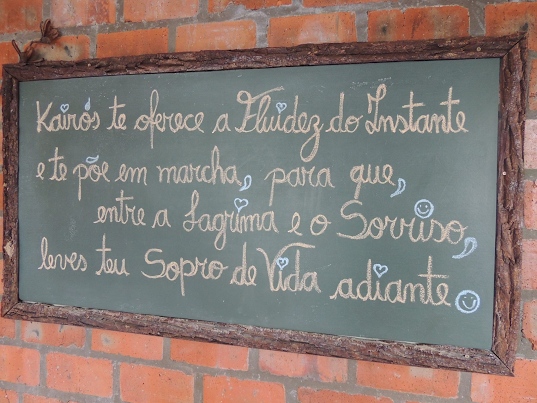 Kairós te oferece a Fluidez do Instante
e te põe em marcha, para que,
entre a Lagrima e o Sorriso,
leves teu Sopro de Vida adiante